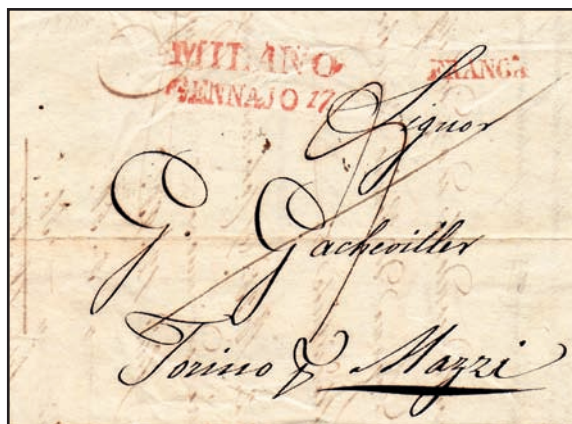 MILANO
GENNAJO 17
FRANCA
Signor
G. Gacheviller
Torino & Mazzi